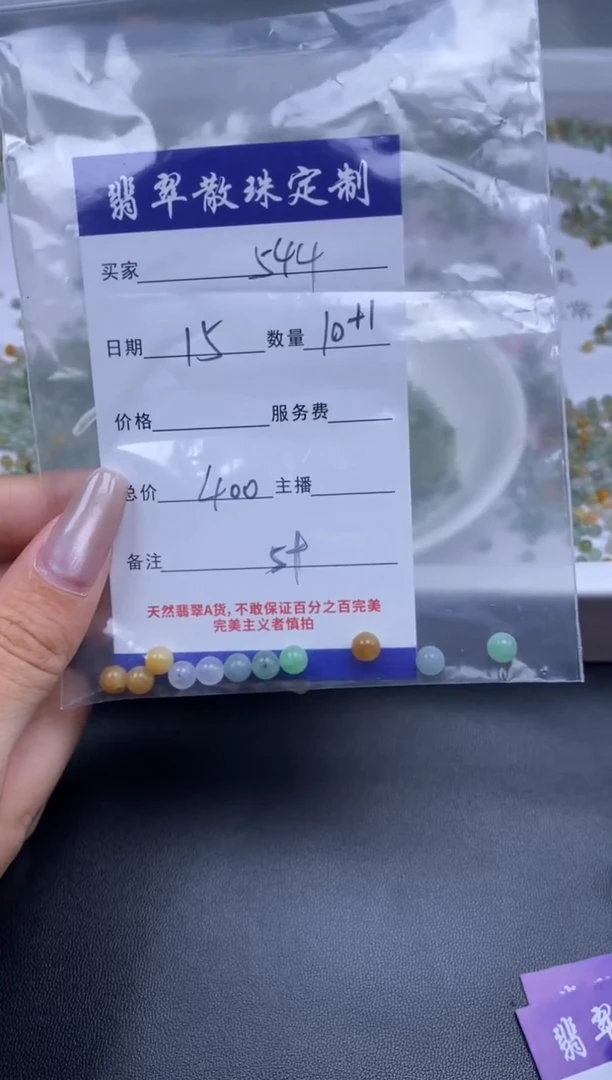 翡翠散珠定制
买家 544
日期 15 数量 10+1
价格 服务费
总价 400 主播
备注 5+
天然翡翠A货,不敢保证百分之百完美
完美主义者慎拍
翡翠